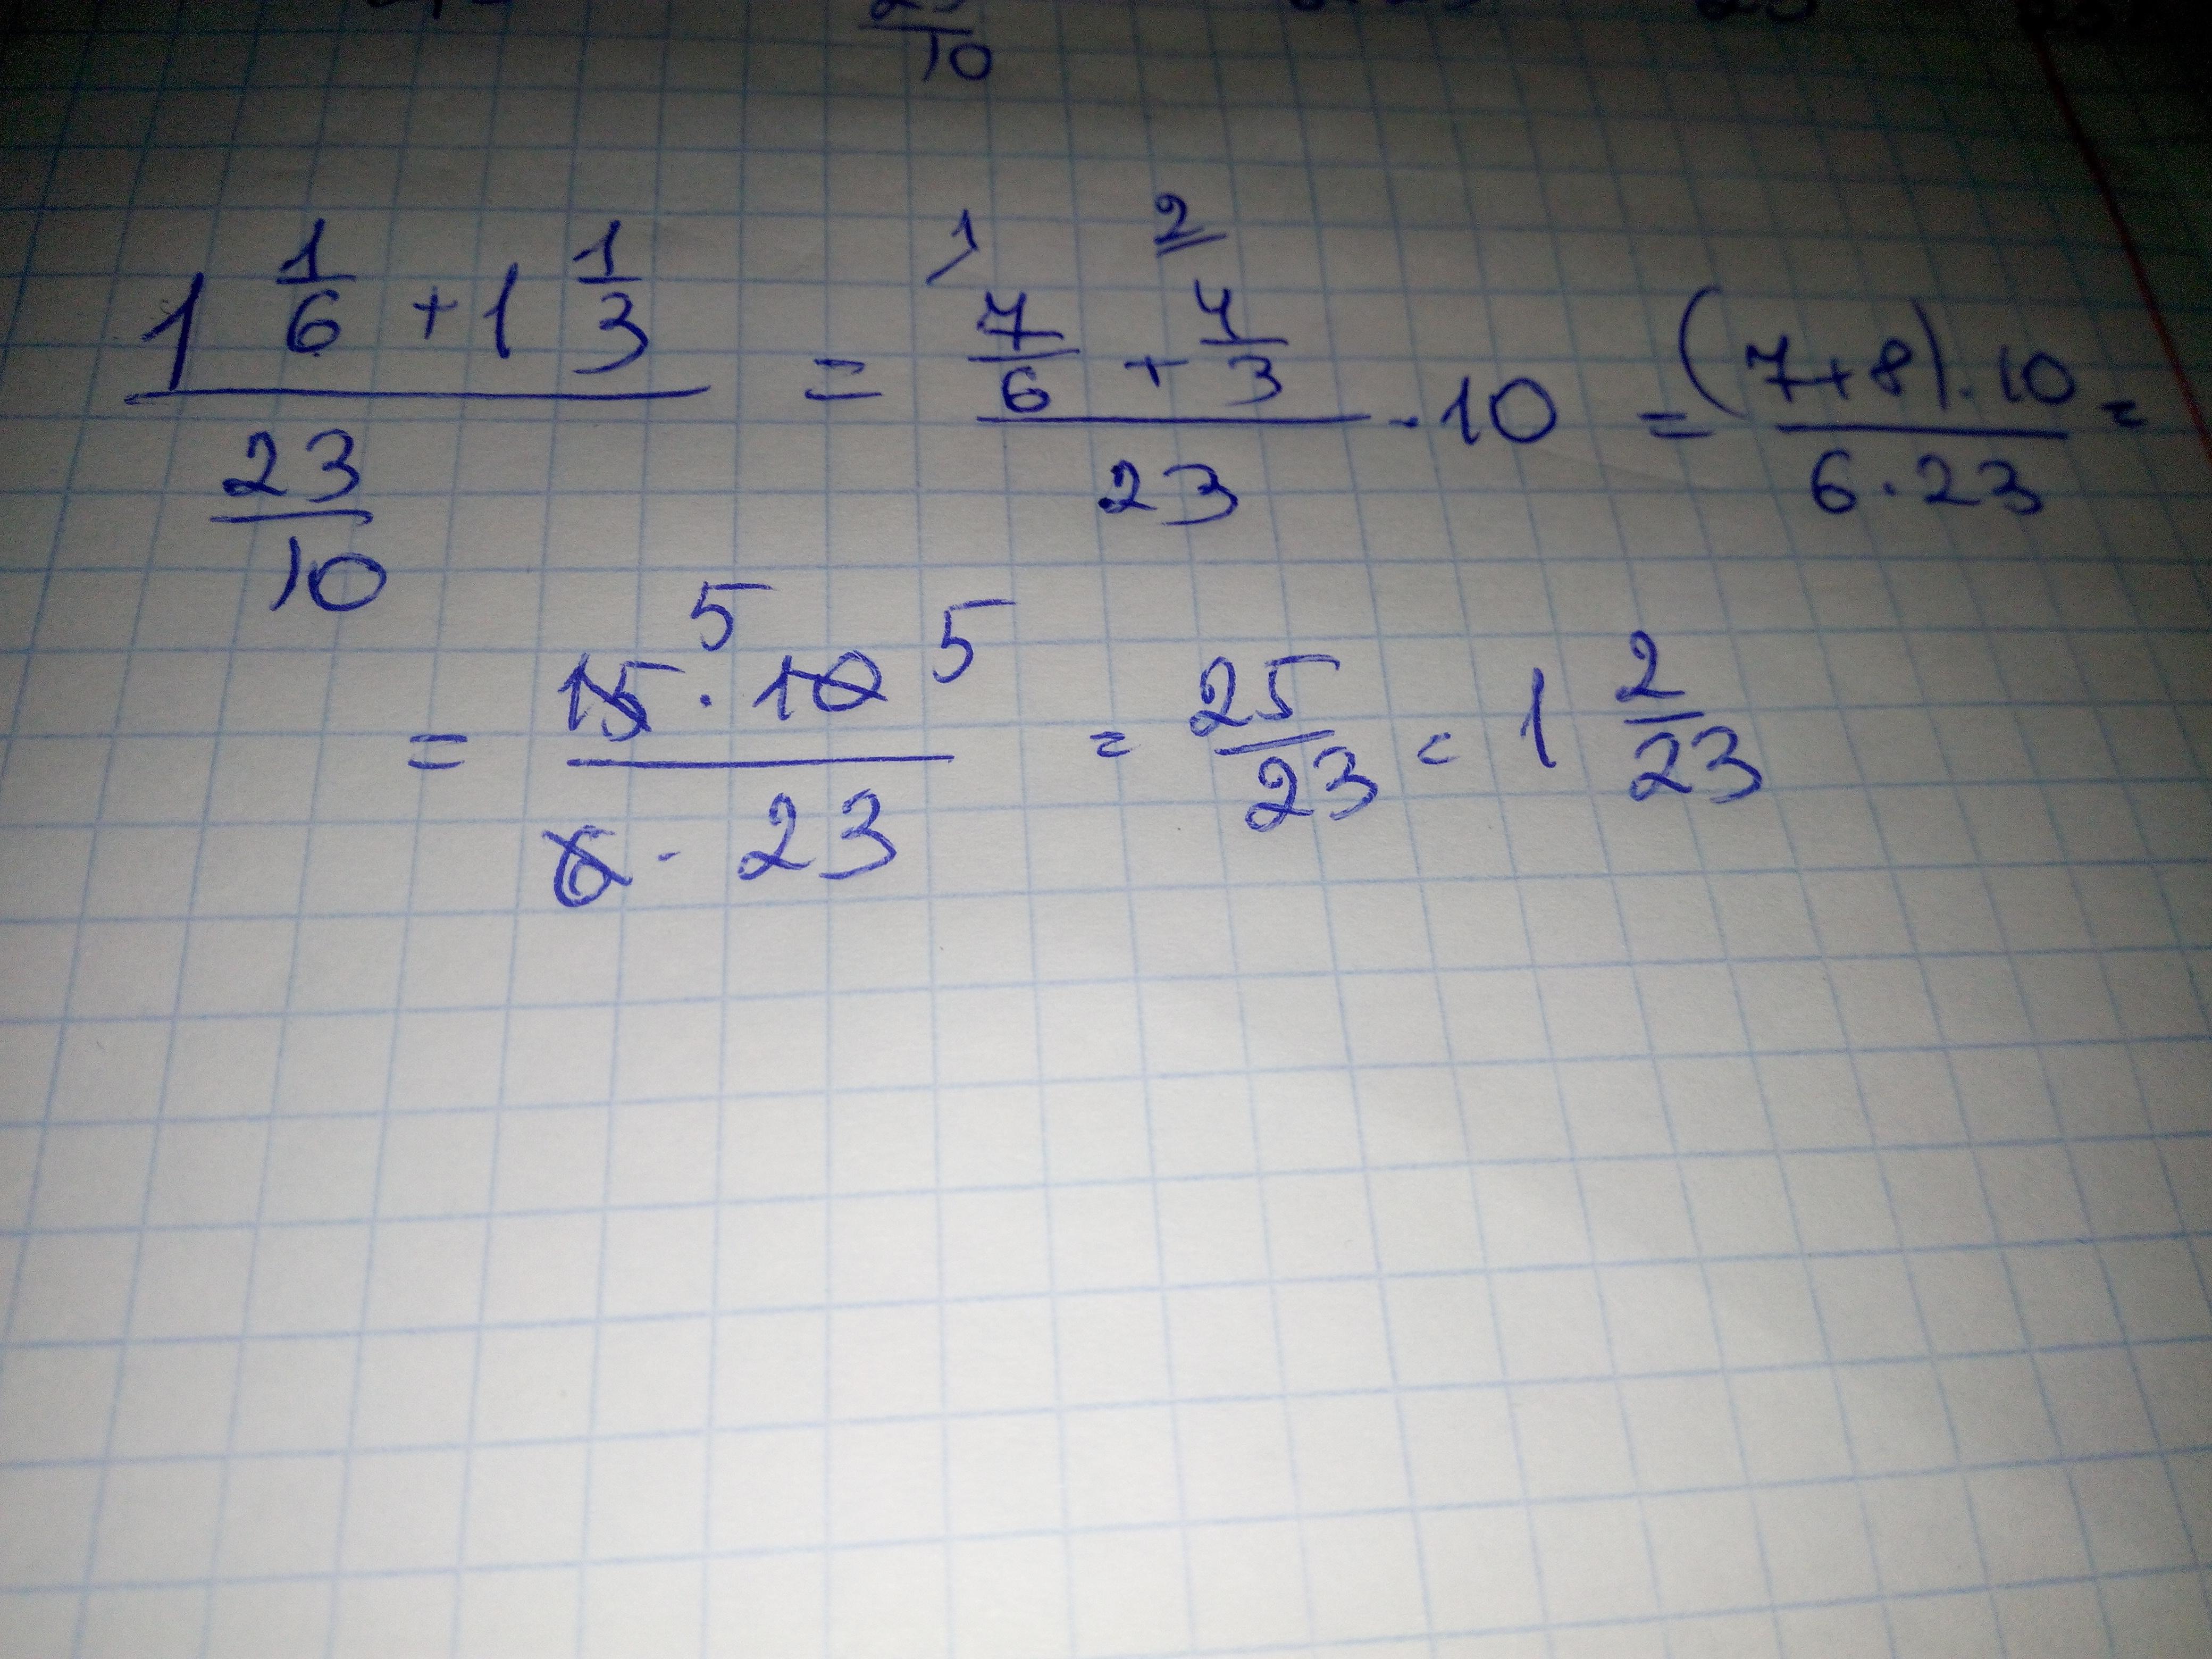 10
1 1/6 + 1 1/3 / 23/10 = 7/6 + 4/3 / 23 · 10 = (7+8)·10 / 6·23 =
1 2
= 15·10 / 6·23 = 25/23 = 1 2/23
5 5